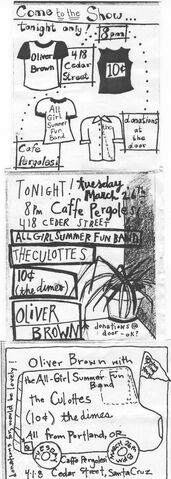 Come to the Show...
tonight only!
8pm
Oliver
Brown
418
Cedar
Street
10¢
All
Girl
Summer
Fun
Band
the
donations
at the
door
Cafe
Pergolesi
TONIGHT! Tuesday
March 26th
8pm Caffe Pergolesi
418 CEDER STREET
ALL GIRL SUMMER FUN BAND
THE CULOTTES
10¢
(the dimes)
OLIVER
BROWN
donations @
door - OK?
Oliver Brown with
the All-Girl Summer Fun
Band
the Culottes
(10¢) the dimes
All from Portland, OR
Caffe Pergolesi
4·1·8 Cedar Street, Santa Cruz
donations big would be lovely...